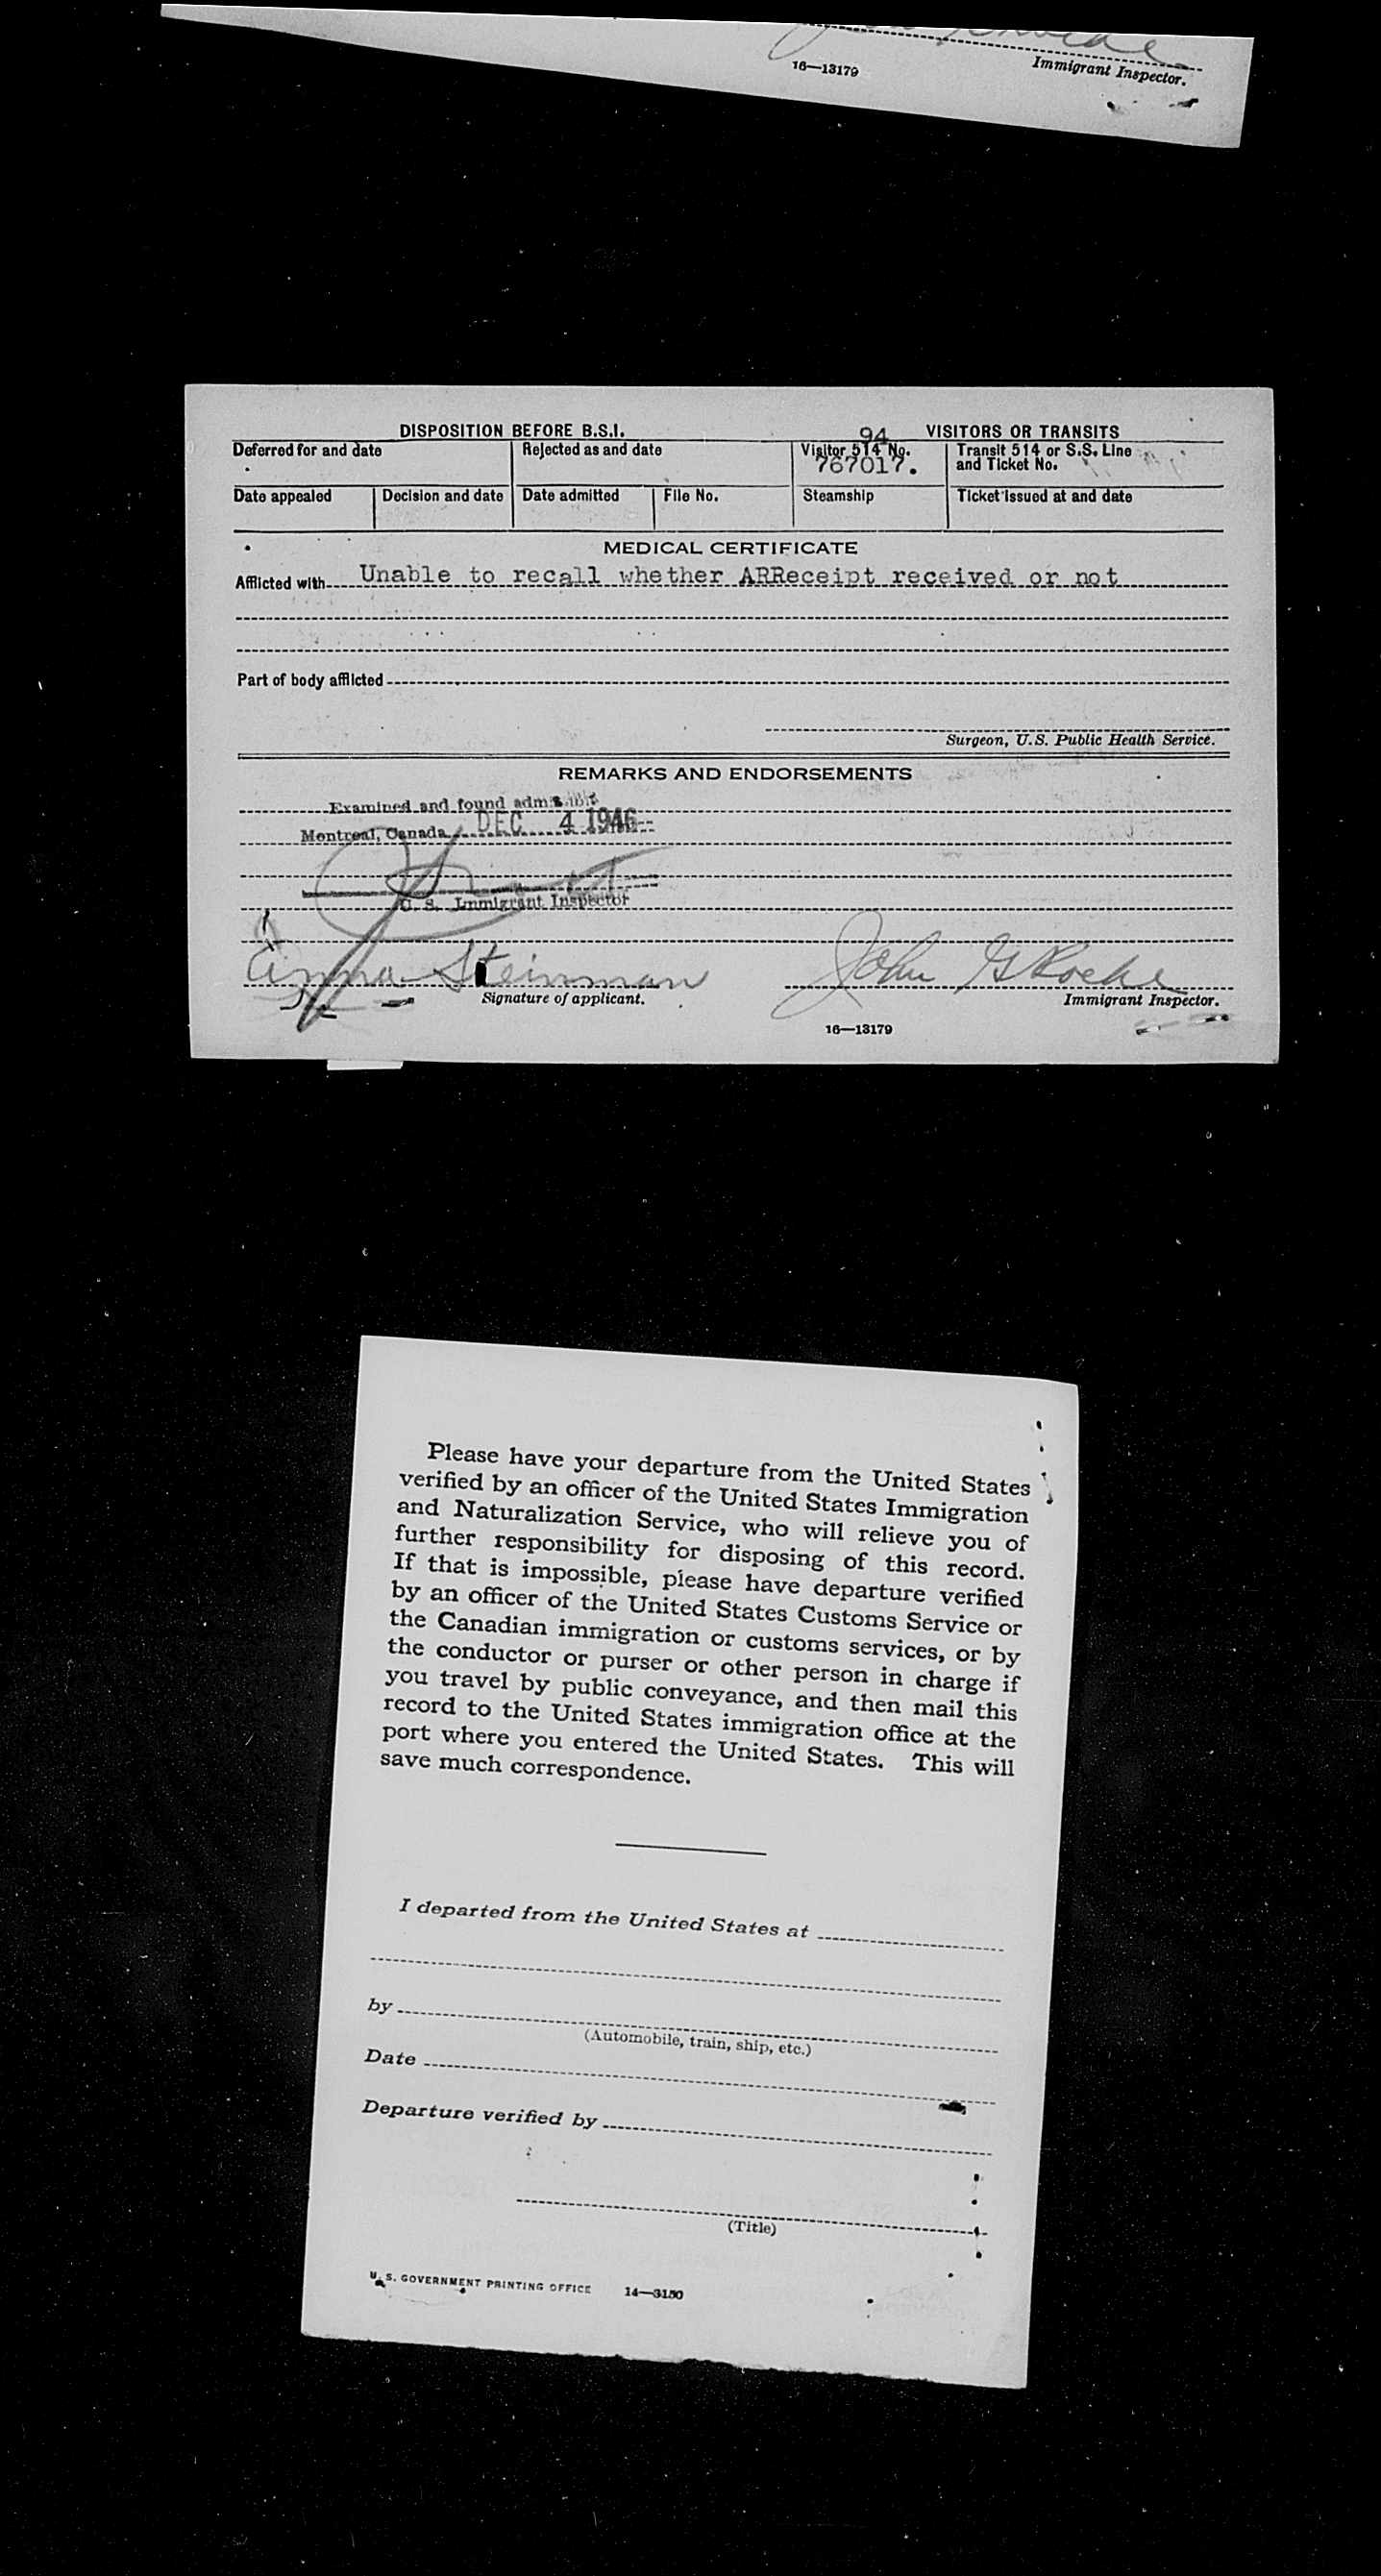 16—13179
Immigrant Inspector.
DISPOSITION BEFORE B.S.I.
94
VISITORS OR TRANSITS
Deferred for and date
Rejected as and date
Visitor 514 No.
767017.
Transit 514 or S.S. Line
and Ticket No.
Date appealed
Decision and date
Date admitted
File No.
Steamship
Ticket issued at and date
MEDICAL CERTIFICATE
Afflicted with Unable to recall whether ARReceipt received or not
Part of body afflicted
Surgeon, U.S. Public Health Service.
REMARKS AND ENDORSEMENTS
Examined and found admissible
Montreal, Canada DEC 4 1946
U. S. Immigrant Inspector
Anna Steinman
John G Roche
Signature of applicant.
Immigrant Inspector.
16—13179
Please have your departure from the United States
verified by an officer of the United States Immigration
and Naturalization Service, who will relieve you of
further responsibility for disposing of this record.
If that is impossible, please have departure verified
by an officer of the United States Customs Service or
the Canadian immigration or customs services, or by
the conductor or purser or other person in charge if
you travel by public conveyance, and then mail this
record to the United States immigration office at the
port where you entered the United States. This will
save much correspondence.
I departed from the United States at
by
(Automobile, train, ship, etc.)
Date
Departure verified by
(Title)
U. S. GOVERNMENT PRINTING OFFICE 14—3150